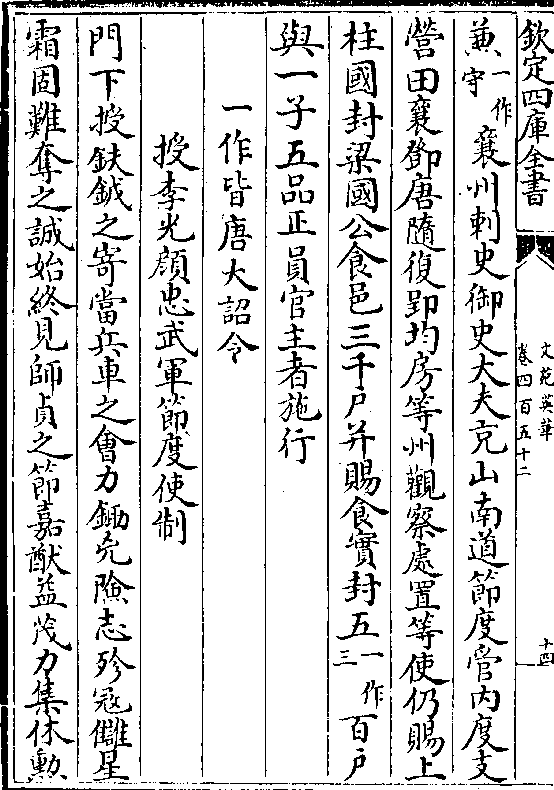 欽定四庫全書
文苑英華
卷四百五十二
十四
兼一作守襄州刺史御史大夫充山南道節度管内度支
營田襄鄧唐隨復郢均房等州觀察處置等使仍賜上
柱國封梁國公食邑三千户并賜食實封五一作三百户
與一子五品正員官主者施行
一作皆唐大詔令
授李光顔忠武軍節度使制
門下授鈇鉞之寄當兵車之會力鋤兇險志殄冦讎星
霜固難奪之誠始終見師貞之節嘉猷益茂力集休勳